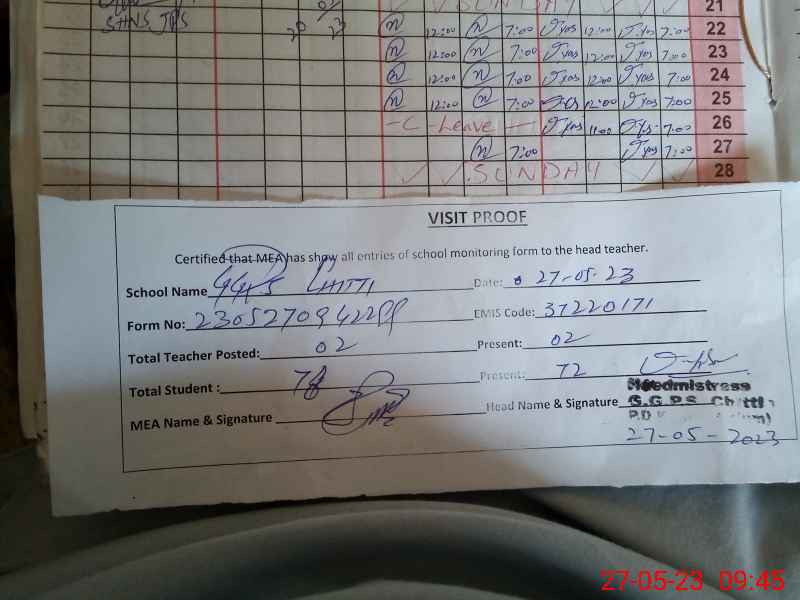 21
SUNDAY
12:00 7:00 yas 12:00 yas 7:00 22
12:00 7:00 yas 12:00 yas 7:00 23
12:00 7:00 yas 12:00 yas 7:00 24
12:00 7:00 yas 12:00 yas 7:00 25
-C-Leave yas 11:00 yas 7:00 26
7:00 yas 7:00 27
SUNDAY 28
VISIT PROOF
Certified that MEA has show all entries of school monitoring form to the head teacher.
School Name GGPS CHITTI Date: 27-05-23
Form No: EMIS Code: 37220171
Total Teacher Posted: 02 Present: 02
Total Student : 78 Present: 72
MEA Name & Signature Head Name & Signature
Headmistress
G.G.P.S. Chitti
27-05-2023
27-05-23 09:45